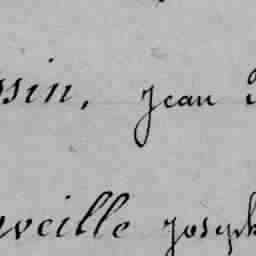 ssin, jean
veille joseph